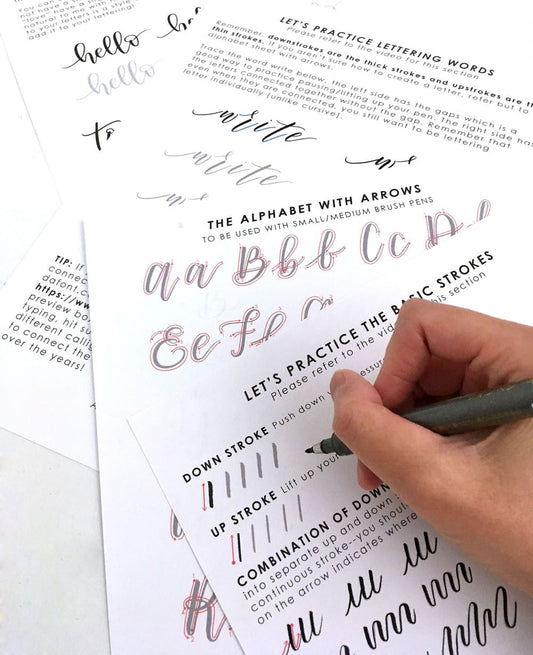 You can
not have a
natural
me to have
to your letters is to style
add it to your lettering!
hello
hello
to
LET'S PRACTICE LETTERING WORDS
Please refer to the video for this section
Remember, downstrokes are the thick strokes and upstrokes are the
thin strokes. If you aren't sure how to create a letter, refer but to
alphabet sheet with arrows.
Trace the word write below, the left side has the gaps which is a
good way to practice pausing/lifting up your pen. The right side has
the letters connected together without the gap. Remember that
even when they are connected, you still want to be lettering
letter individually (unlike cursive).
write
write
we
THE ALPHABET WITH ARROWS
TO BE USED WITH SMALL/MEDIUM BRUSH PENS
a a B b b C c D
E e F f
TIP: If
connec
dafont.c
https://ww
preview bo
typing, hit su
different calli
to connect the
over the years!
LET'S PRACTICE THE BASIC STROKES
Please refer to the vide this section
DOWN STROKE Push down y essure
UP STROKE Lift up you
COMBINATION OF DOWN
into separate up and down s
continuous stroke--you shou
on the arrow indicates where
H